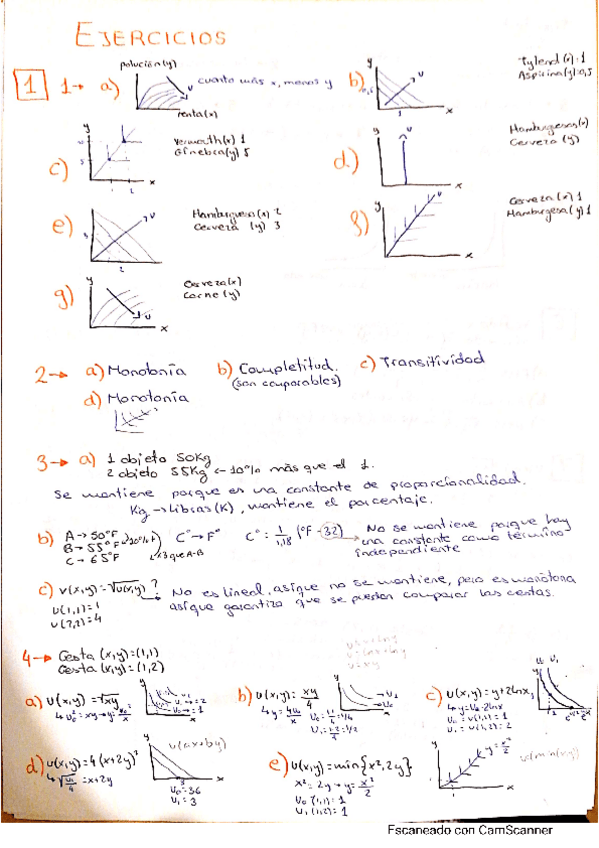 EJERCICIOS
1 1→ a) polución(y) U cuanto más x, menos y renta(x)
b) y U x 1 Tylenol (x): 1
Aspirina(y): 0,5
c) y x 1 2 Vermouth(x) 1
Ginebra(y) 5
d) y U x Hamburguesas(x)
Cerveza (y)
e) y U x 2 Hamburguesa(x) 2
Cerveza (y) 3
f) y U x Cerveza(x) 1
Hamburguesa(y) 1
g) y U x Cerveza(x)
Carne(y)
2→ a) Monotonía b) Completitud. (son comparables) c) Transitividad
d) Monotonía
3→ a) 1 objeto 50Kg
2 objeto 55Kg ← 10% más que el 1.
Se mantiene porque es una constante de proporcionalidad.
Kg → Libras(K), mantiene el porcentaje.
b) A→50°F
B→55°F
C→65°F
C°→F° C°: 1/1,18 (°F-32) No se mantiene porque hay
una constante como término
independiente
c) v(x,y)=√U(x,y)? No es lineal, asique no se mantiene, pero es monótona
asique garantiza que se puedan comparar las cestas.
U(1,1)=1
U(2,2)=4
4→ Cesta (x,y)=(1,1)
Cesta (x,y)=(1,2)
U=xy
a) U(x,y)=√xy
b) U(x,y)=xy/4
c) U(x,y)=y+2lnx
↳ y=U₀-2lnx
U₀=U(1,1)=1
U₁=U(1,2)=2
d) U(x,y)=4(x+2y)²
↳ √U₀/4=x+2y
U(ax+by)
U₀=36
U₁=3
e) U(x,y)=min{x²,2y}
x²=2y→y=x²/2
U₀(1,1)=1
U₁(1,2)=1
y=x²/2
Escaneado con CamScanner